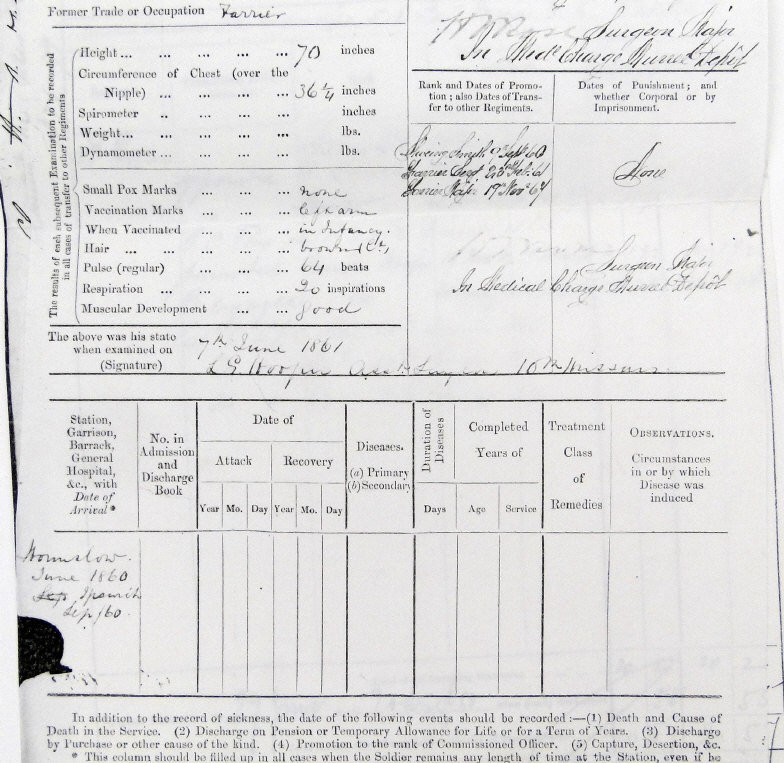 Former Trade or Occupation Farrier
Surgeon Major
In Medl Charge Cavalry Depôt
The results of each subsequent Examination to be recorded
in all cases of transfer to other Regiments
Height ... ... ... ... 70 inches
Circumference of Chest (over the
Nipple) ... ... ... 36¼ inches
Spirometer ... ... ... inches
Weight... ... ... ... lbs.
Dynamometer ... ... ... lbs.
Small Pox Marks ... ... none
Vaccination Marks ... ... left arm
When Vaccinated ... ... in Infancy.
Hair ... ... ... ... brown
Pulse (regular) ... ... 64 beats
Respiration ... ... ... 20 inspirations
Muscular Development ... ... good
Rank and Dates of Promo-
tion; also Dates of Trans-
fer to other Regiments.
Shoeing Smith 9 Sept 60
Farrier Sergt 61
Farrier Major 17 Novr 64
Dates of Punishment; and
whether Corporal or by
Imprisonment.
None
Surgeon Major
In Medical Charge Cavalry Depôt
The above was his state
when examined on 7th June 1861
(Signature) Asst Surgeon 10th Hussars
Station,
Garrison,
Barrack,
General
Hospital,
&c., with
Date of
Arrival*
No. in
Admission
and
Discharge
Book
Date of
Attack Recovery
Year Mo. Day Year Mo. Day
Diseases.
(a) Primary
(b) Secondary
Duration of
Diseases
Days
Completed
Years of
Age Service
Treatment
Class
of
Remedies
OBSERVATIONS.
Circumstances
in or by which
Disease was
induced
Hounslow.
June 1860
Sep Ipswich
Sep /60.
In addition to the record of sickness, the date of the following events should be recorded:—(1) Death and Cause of
Death in the Service. (2) Discharge on Pension or Temporary Allowance for Life or for a Term of Years. (3) Discharge
by Purchase or other cause of the kind. (4) Promotion to the rank of Commissioned Officer. (5) Capture, Desertion, &c.
* This column should be filled up in all cases when the Soldier remains any length of time at the Station, even if be